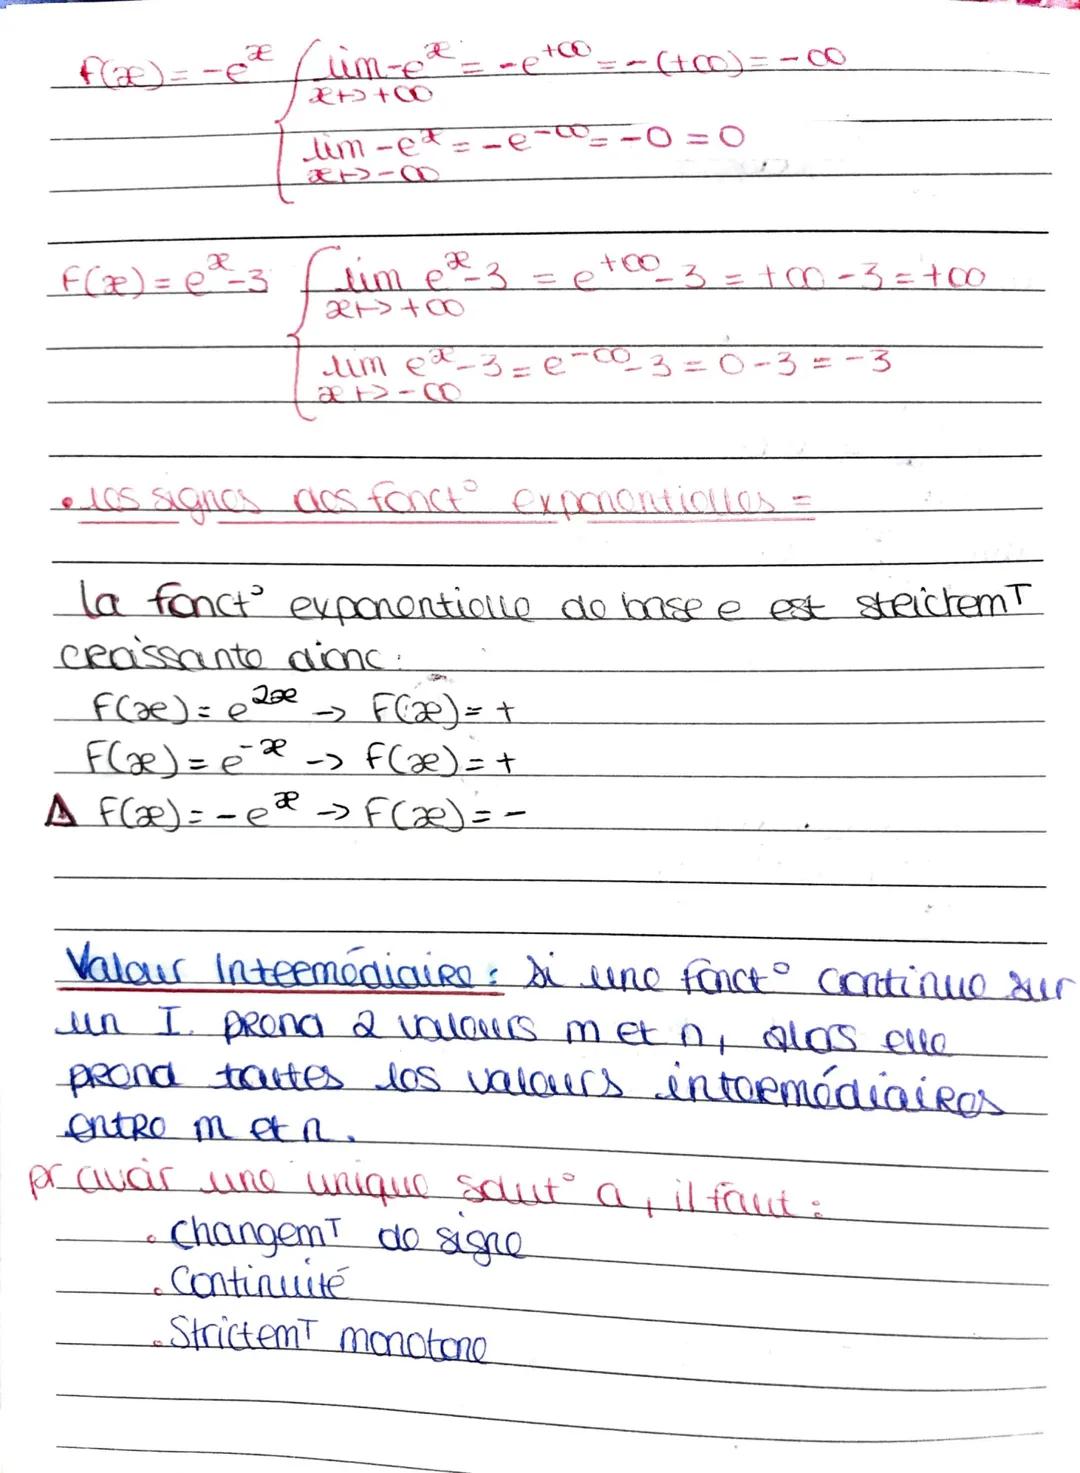 f(x) = -e^x { lim -e^x = -e^+∞ = -(+∞) = -∞
x↦+∞
lim -e^x = -e^-∞ = -0 = 0
x↦-∞
f(x) = e^x-3 { lim e^x-3 = e^+∞-3 = +∞-3 = +∞
x↦+∞
lim e^x-3 = e^-∞-3 = 0-3 = -3
x↦-∞
• les signes des fonct° exponentielles =
la fonct° exponentielle de base e est strictemT
croissante donc :
f(x) = e^2x -> f(x) = +
f(x) = e^-x -> f(x) = +
⚠ f(x) = -e^x -> f(x) = -
Valeur Intermédiaire : Si une fonct° continue sur
un I. prend 2 valeurs m et n, alos elle
prend toutes les valeurs intermédiaires
entre m et n.
pr avoir une unique solut° a, il faut :
• changemT de signe
• Continuité
• StrictemT monotone